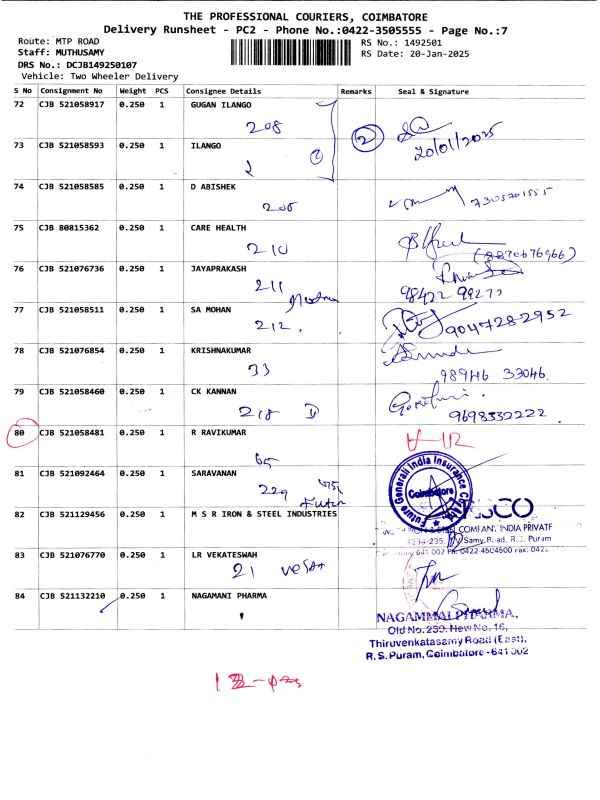 THE PROFESSIONAL COURIERS, COIMBATORE
Delivery Runsheet - PC2 - Phone No.:0422-3505555 - Page No.:7
Route: MTP ROAD
RS No.: 1492501
Staff: MUTHUSAMY
RS Date: 20-Jan-2025
DRS No.: DCJB149250107
Vehicle: Two Wheeler Delivery
S No Consignment No Weight PCS Consignee Details Remarks Seal & Signature
72 CJB 521058917 0.250 1 GUGAN ILANGO
208
2 20/01/2025
73 CJB 521058593 0.250 1 ILANGO
2
74 CJB 521058585 0.250 1 D ABISHEK
206 7305701555
75 CJB 80815362 0.250 1 CARE HEALTH
210 (8870676966)
76 CJB 521076736 0.250 1 JAYAPRAKASH
211 98422 99277
77 CJB 521058511 0.250 1 SA MOHAN
212. 9047282952
78 CJB 521076854 0.250 1 KRISHNAKUMAR
33 98946 33046.
79 CJB 521058460 0.250 1 CK KANNAN
218 9698332222
80 CJB 521058481 0.250 1 R RAVIKUMAR
65
81 CJB 521092464 0.250 1 SARAVANAN
229
Future Generali India Insurance
Coimbatore
82 CJB 521129456 0.250 1 M S R IRON & STEEL INDUSTRIES
COMPANY INDIA PRIVATE
Samy Road, R.S. Puram
641 002 0422-4504500
83 CJB 521076770 0.250 1 LR VEKATESWAH
21
84 CJB 521132210 0.250 1 NAGAMANI PHARMA
NAGAMMAI PHARMA,
Old No. 239, New No. 16,
Thiruvenkatasamy Road (East),
R.S. Puram, Coimbatore - 641 002